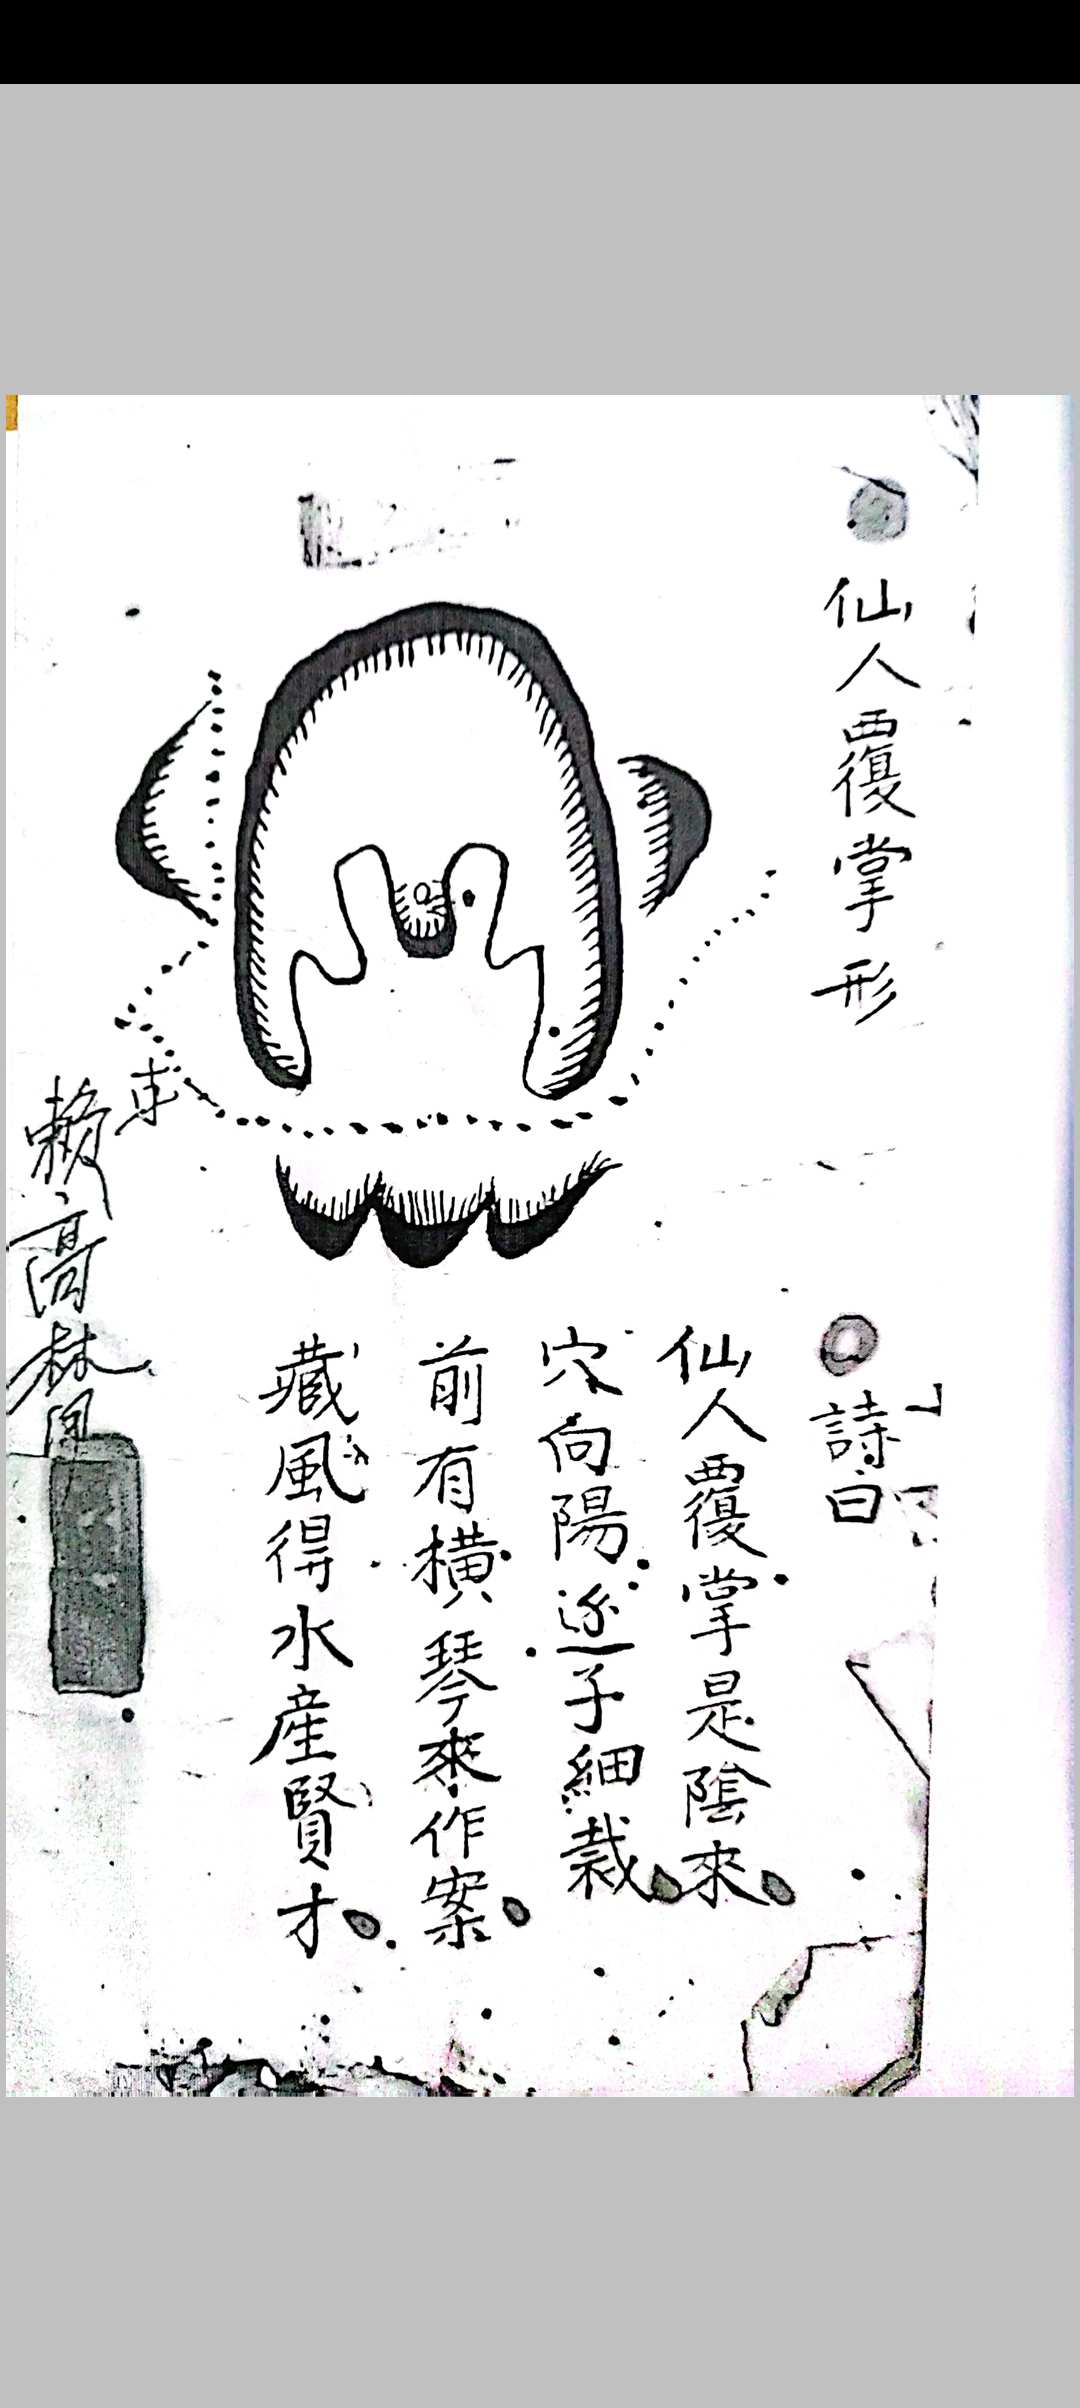 仙人覆掌形
詩曰
仙人覆掌是陰來
穴向陽边子細裁
前有橫琴來作案
藏風得水產賢才